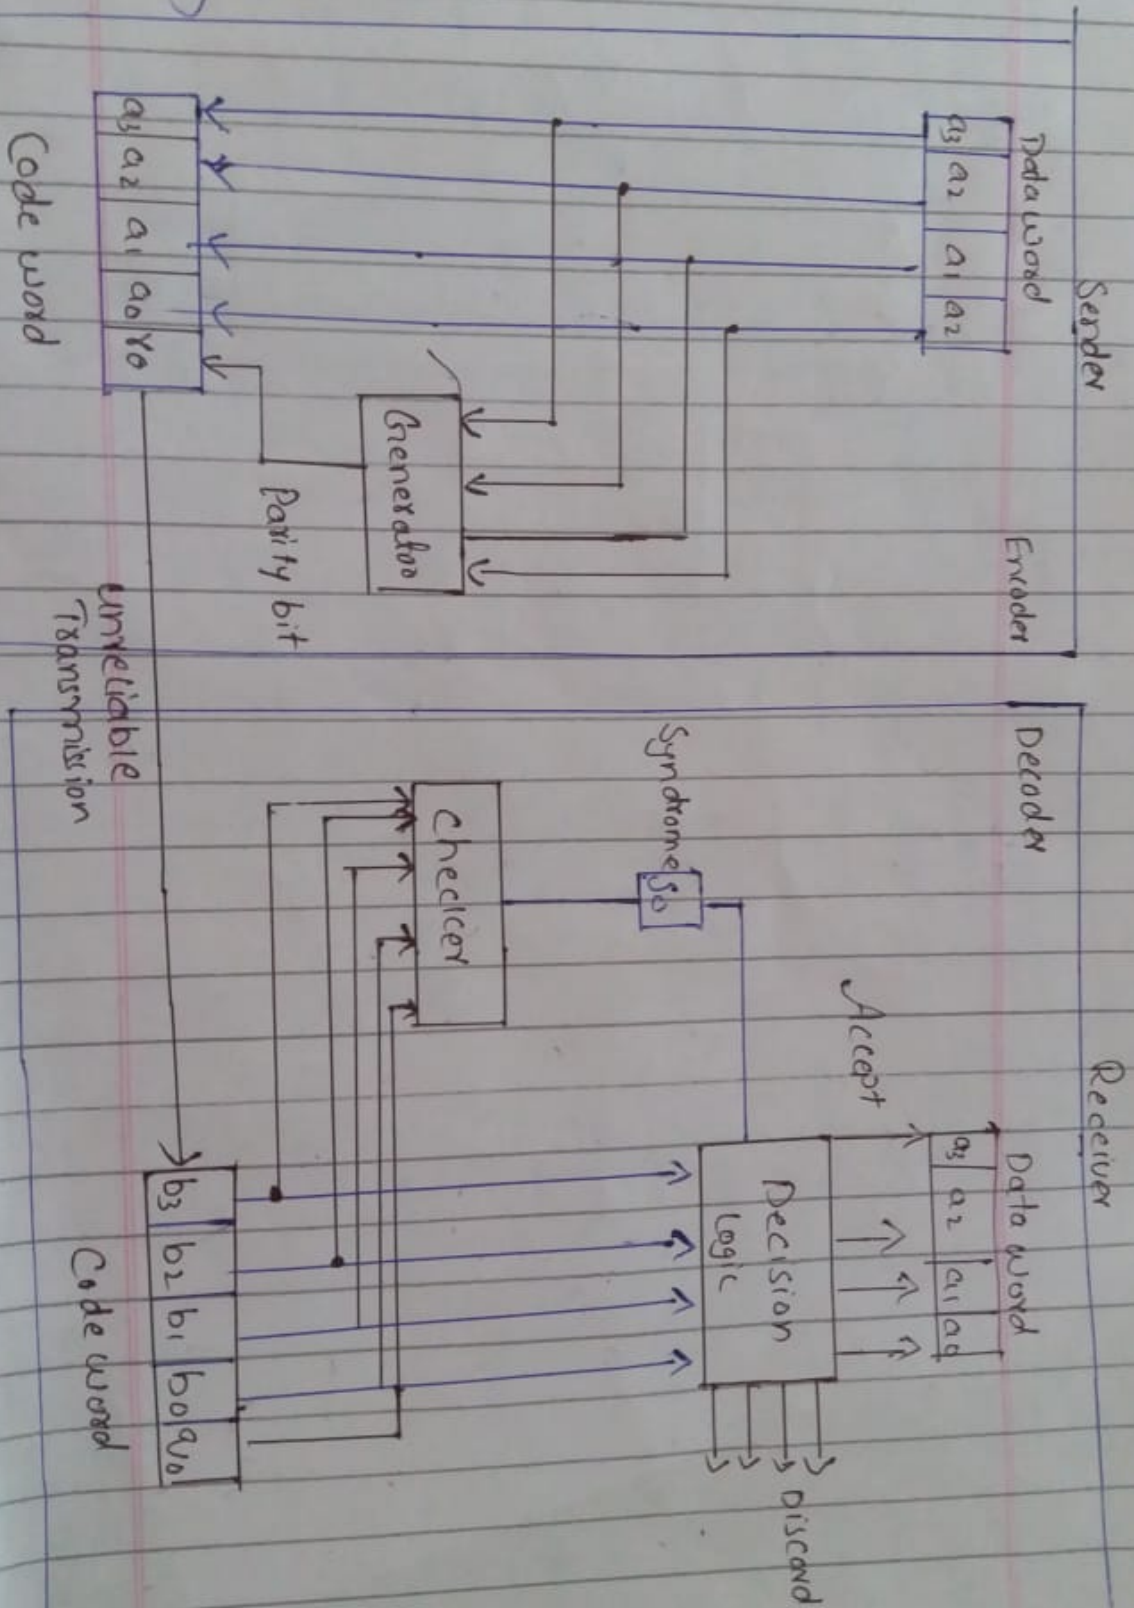 Sender
Encoder
Data word
a3 a2 a1 a2
Generator
Parity bit
a3 a2 a1 a0 r0
Code word
unreliable
Transmission
Receiver
Decoder
Data word
a3 a2 a1 a0
Accept
Decision
Logic
Discard
Syndrome S0
Checker
b3 b2 b1 b0 q0
Code word